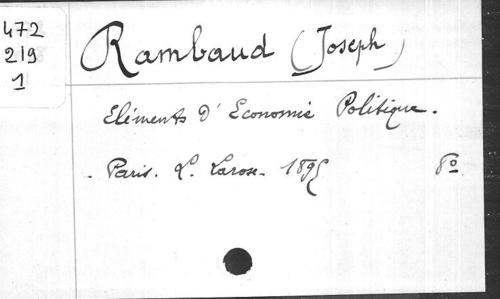 472
219
1
Rambaud (Joseph)
Eléments d'Economie Politique.
- Paris. L. Larose. 1895 8º